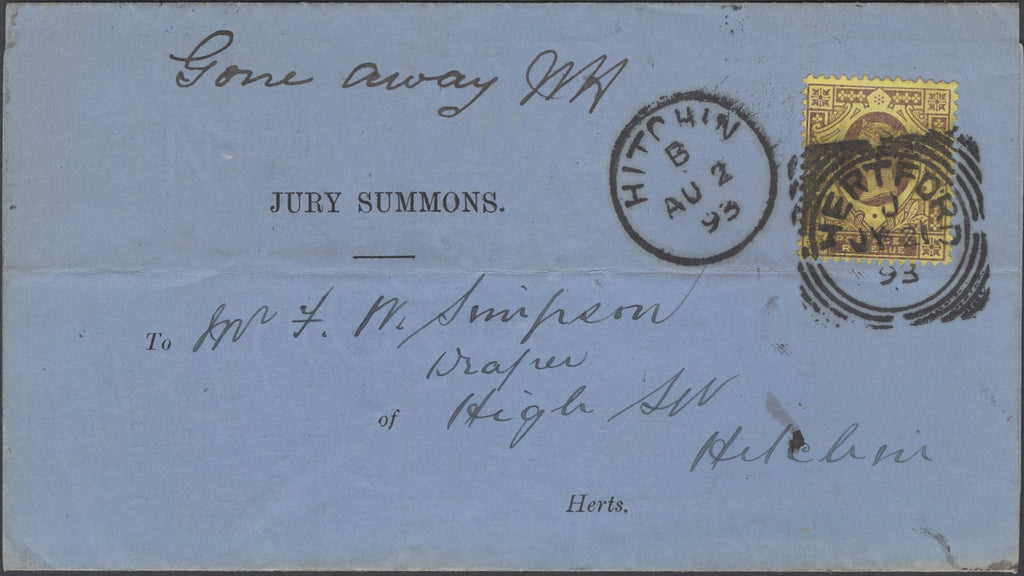 Gone away WH
HITCHIN
B
AU 2
93
HERTFORD
J
JY 31
93
JURY SUMMONS.
To Mr F. W. Simpson
Draper
of High St
Hitchin
Herts.